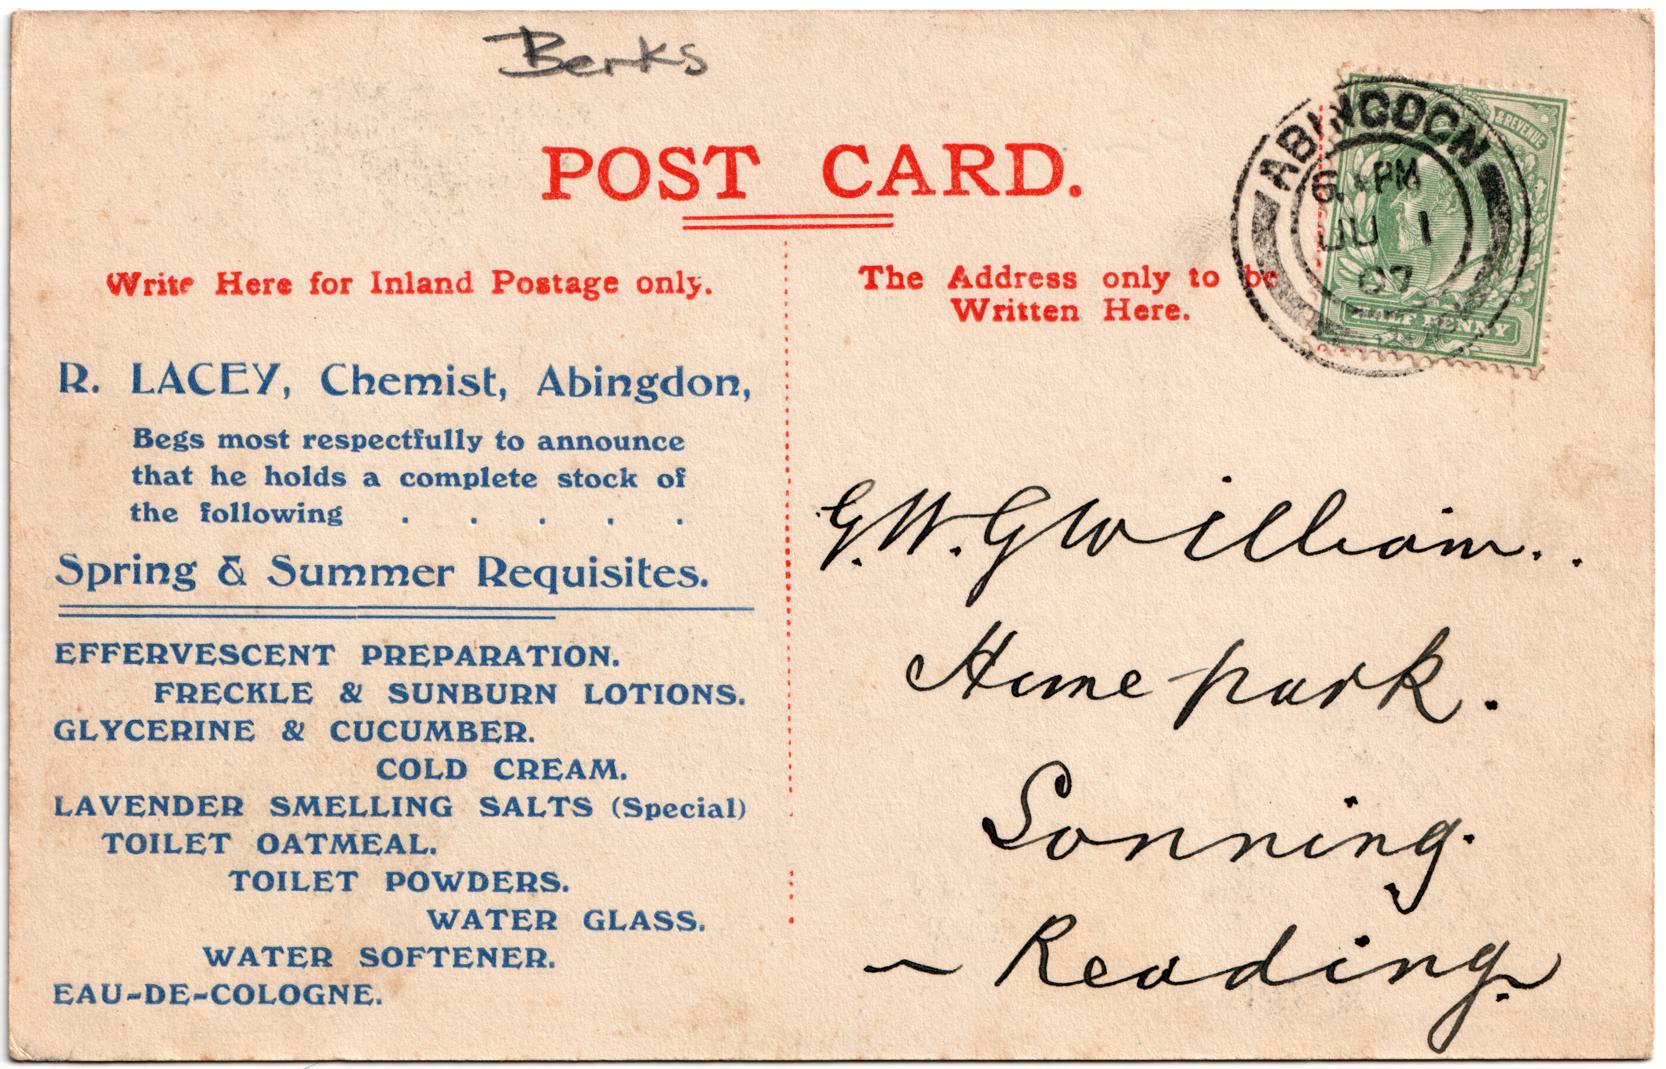 Berks
POST CARD.
Write Here for Inland Postage only.
The Address only to be
Written Here.
ABINGDON
PM
JU 1
07
& REVENUE
HALF PENNY
R. LACEY, Chemist, Abingdon,
Begs most respectfully to announce
that he holds a complete stock of
the following . . . . .
Spring & Summer Requisites.
EFFERVESCENT PREPARATION.
FRECKLE & SUNBURN LOTIONS.
GLYCERINE & CUCUMBER.
COLD CREAM.
LAVENDER SMELLING SALTS (Special)
TOILET OATMEAL.
TOILET POWDERS.
WATER GLASS.
WATER SOFTENER.
EAU-DE-COLOGNE.
G. W. Gwilliam..
Home park.
Sonning.
~ Reading.